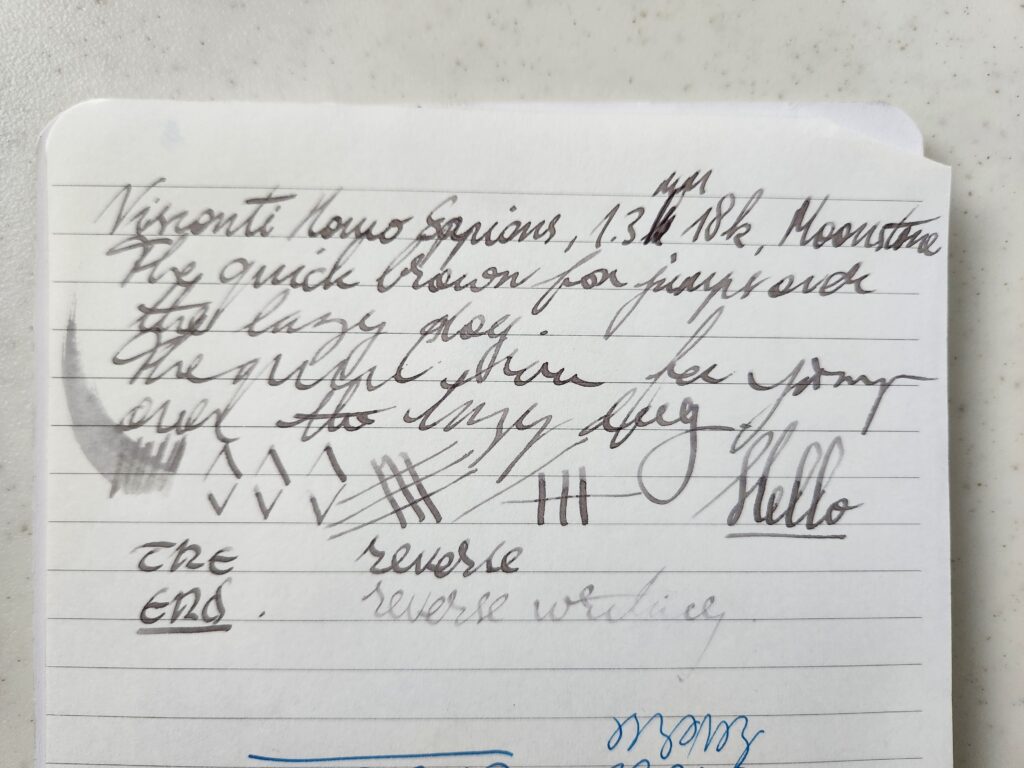 Visconti Homo Sapiens, 1.3 mm 18k, Moonstone
The quick brown fox jumps over
the lazy dog.
The quick brown fox jump
over the lazy dog
Hello
THE reverse
END. reverse writing
reverse